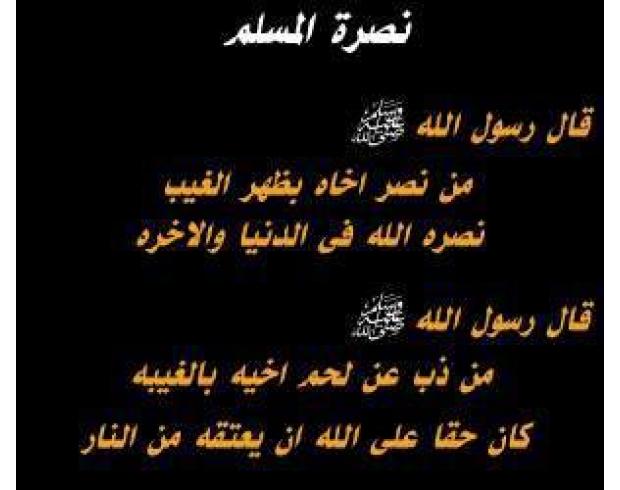 نصرة المسلم
قال رسول الله ﷺ
من نصر اخاه بظهر الغيب
نصره الله فى الدنيا والاخره
قال رسول الله ﷺ
من ذب عن لحم اخيه بالغيبه
كان حقا على الله ان يعتقه من النار